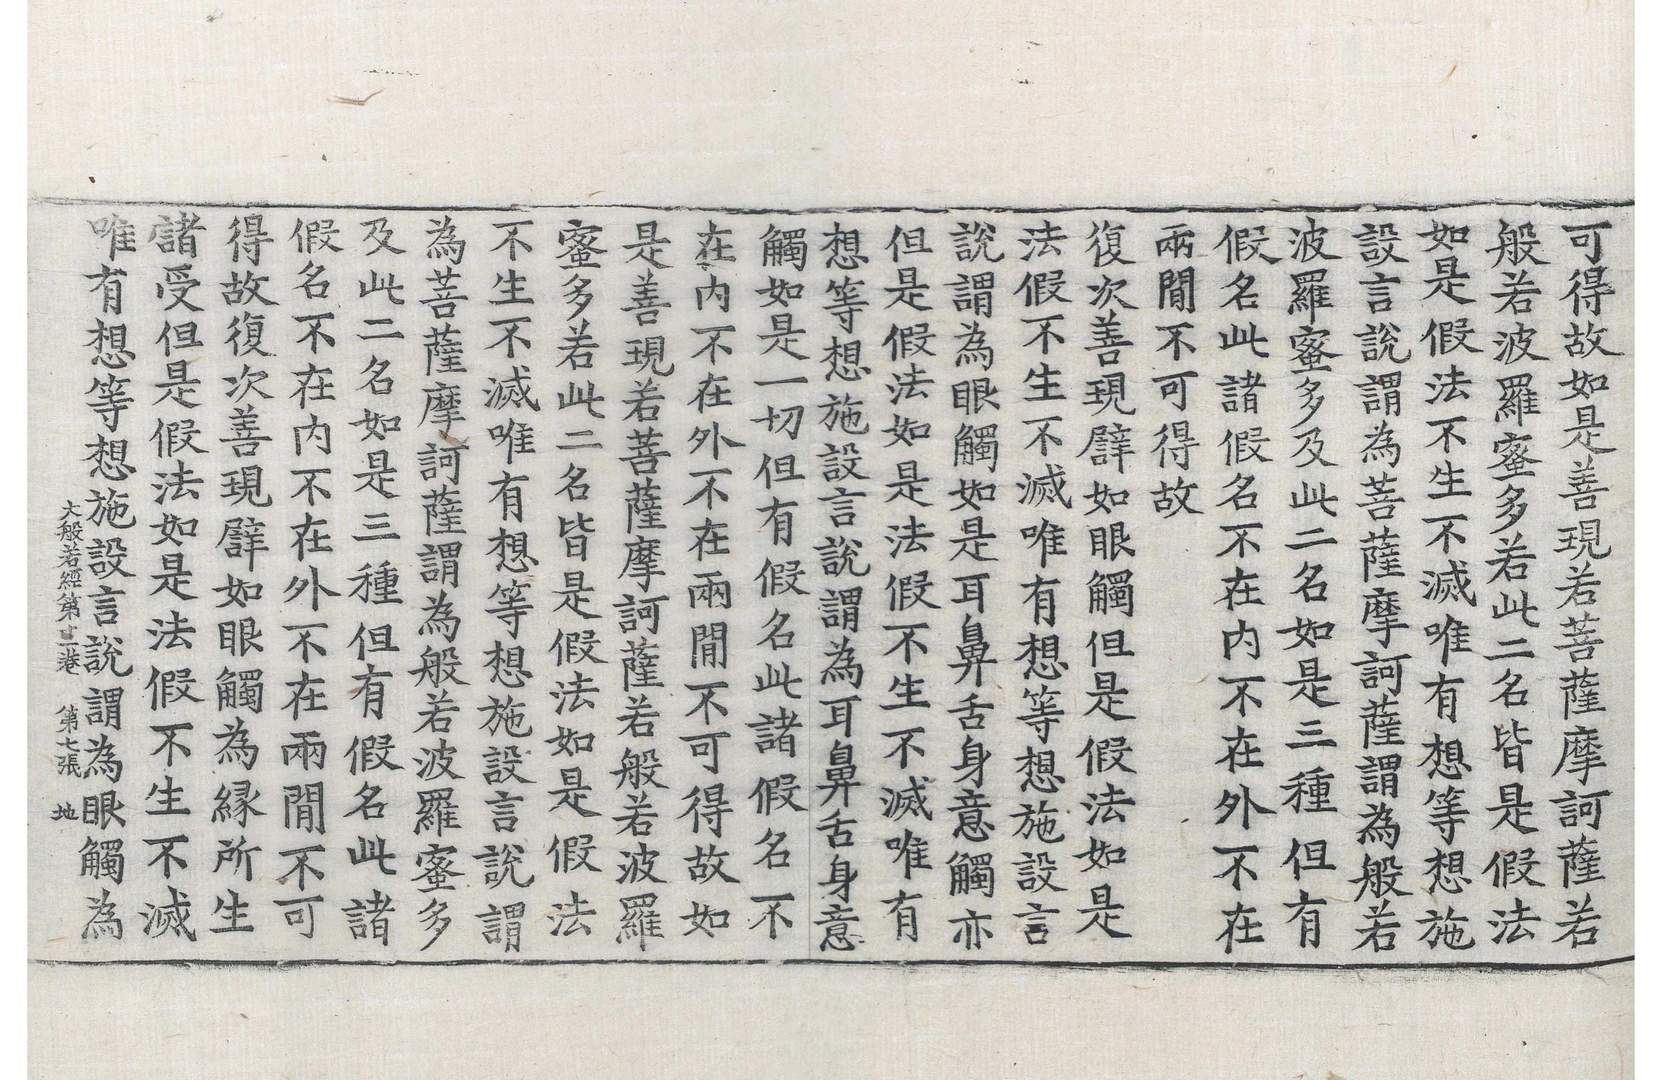 可得故如是善現若菩薩摩訶薩若
般若波羅蜜多若此二名皆是假法
如是假法不生不滅唯有想等想施
設言說謂為菩薩摩訶薩謂為般若
波羅蜜多及此二名如是三種但有
假名此諸假名不在内不在外不在
兩閒不可得故
復次善現譬如眼觸但是假法如是
法假不生不滅唯有想等想施設言
說謂為眼觸如是耳鼻舌身意觸亦
但是假法如是法假不生不滅唯有
想等想施設言說謂為耳鼻舌身意
觸如是一切但有假名此諸假名不
在内不在外不在兩閒不可得故如
是善現若菩薩摩訶薩若般若波羅
蜜多若此二名皆是假法如是假法
不生不滅唯有想等想施設言說謂
為菩薩摩訶薩謂為般若波羅蜜多
及此二名如是三種但有假名此諸
假名不在内不在外不在兩閒不可
得故復次善現譬如眼觸為縁所生
諸受但是假法如是法假不生不滅
唯有想等想施設言說謂為眼觸為
大般若經第十二卷　第七張　地